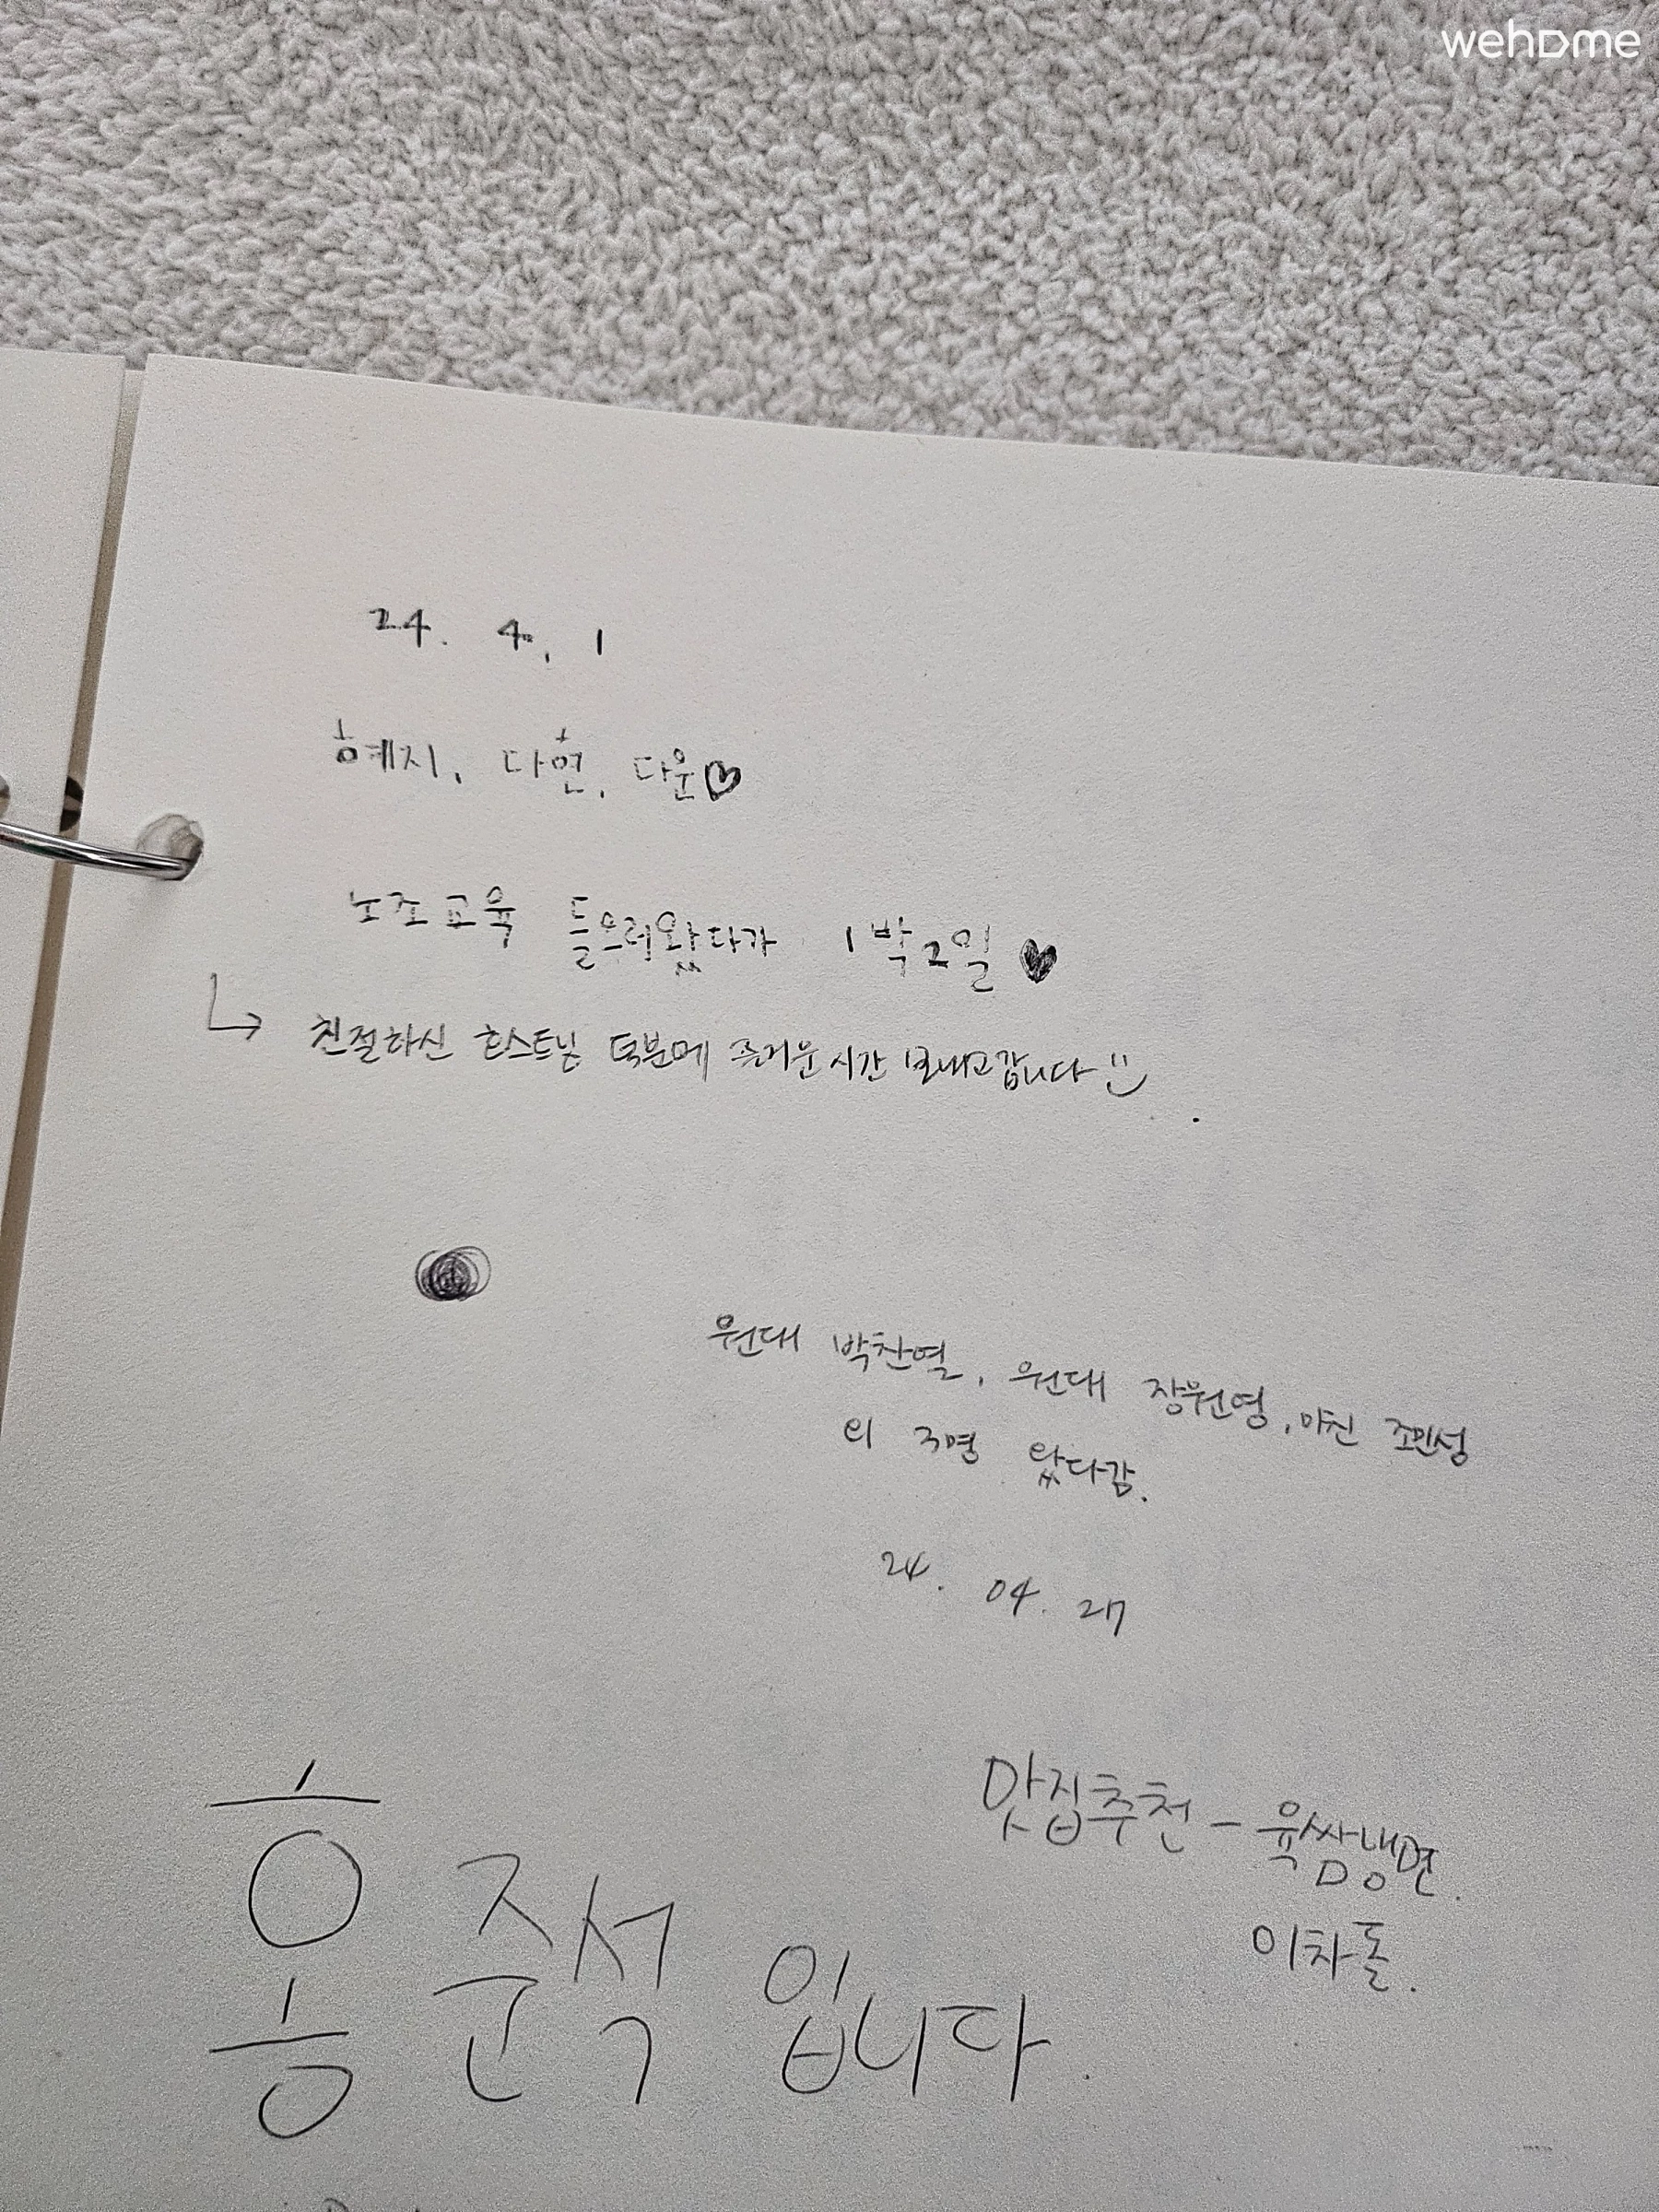 wehome
24. 4. 1
혜지, 다현, 다운♡
노조교육 들으러왔다가 1박2일 ♥
↳ 친절하신 호스트님 덕분에 즐거운시간 보내고갑니다 :)
원대 박찬열, 원대 장원영, 마친 조민성
외 3명 왔다감.
24. 04. 27
맛집추천 - 육쌈냉면.
이차돌.
홍준석 입니다.